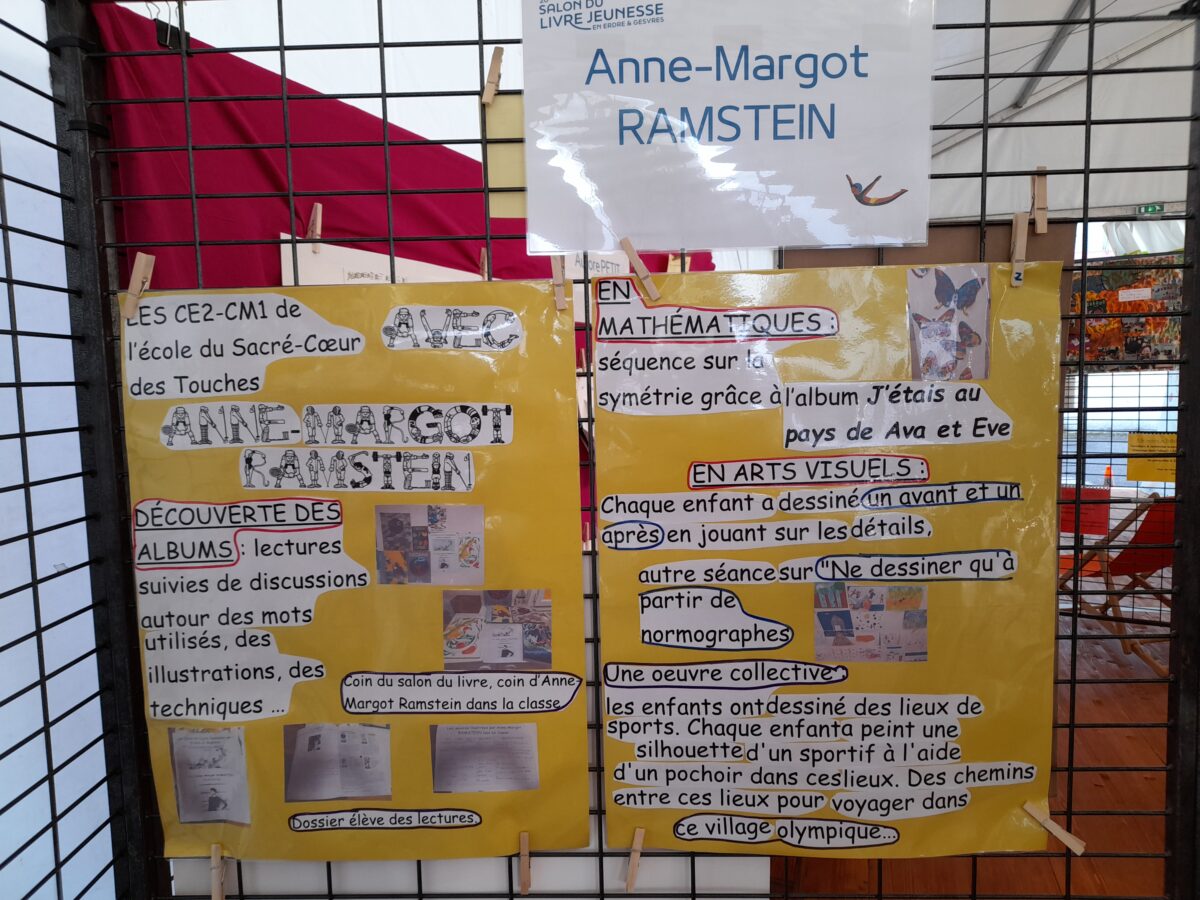 SALON DU
LIVRE JEUNESSE
EN ERDRE & GESVRES
Anne-Margot
RAMSTEIN
Aurore PETIT
LES CE2-CM1 de
l'école du Sacré-Cœur
des Touches
AVEC
ANNE-MARGOT
RAMSTEIN
DÉCOUVERTE DES
ALBUMS : lectures
suivies de discussions
autour des mots
utilisés, des
illustrations, des
techniques ...
Coin du salon du livre, coin d'Anne-
Margot Ramstein dans la classe
Dossier élève des lectures.
EN
MATHÉMATIQUES :
séquence sur la
symétrie grâce à l'album J'étais au
pays de Ava et Eve
EN ARTS VISUELS :
Chaque enfant a dessiné un avant et un
après en jouant sur les détails,
autre séance sur "Ne dessiner qu'à
partir de
normographes
Une oeuvre collective :
les enfants ont dessiné des lieux de
sports. Chaque enfant a peint une
silhouette d'un sportif à l'aide
d'un pochoir dans ces lieux. Des chemins
entre ces lieux pour voyager dans
ce village olympique...